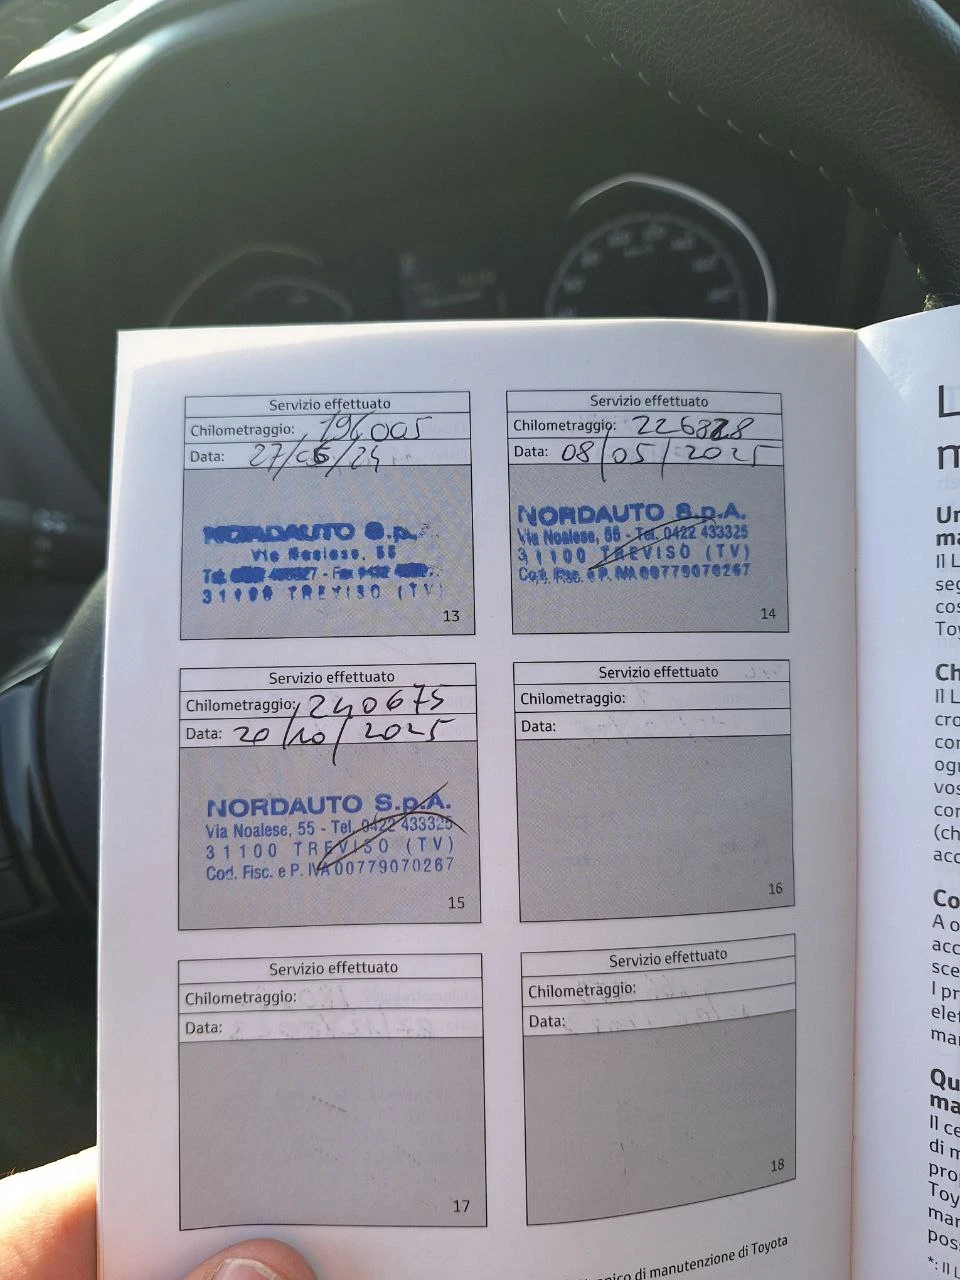 Servizio effettuato
Chilometraggio: 196005
Data: 27/06/24
NORDAUTO S.p.
Via Noalese, 55
31100 TREVISO (TV)
13
Servizio effettuato
Chilometraggio: 226828
Data: 08/05/2025
NORDAUTO S.p.A.
Via Noalese, 55 - Tel. 0422 433325
31100 TREVISO (TV)
Cod. Fisc. e P. IVA 00779070267
14
Servizio effettuato
Chilometraggio: 240675
Data: 20/10/2025
NORDAUTO S.p.A.
Via Noalese, 55 - Tel. 0422 433325
31100 TREVISO (TV)
Cod. Fisc. e P. IVA 00779070267
15
Servizio effettuato
Chilometraggio:
Data:
16
Servizio effettuato
Chilometraggio:
Data:
17
Servizio effettuato
Chilometraggio:
Data:
18
di manutenzione di Toyota
L
m
Un
ma
Il L
seg
cos
Toy
Ch
Il L
cro
con
ogn
vos
con
(ch
acc
Co
A o
acc
sce
I pr
elet
man
Qu
ma
Il ce
di m
pro
Toy
man
poss
*: Il L